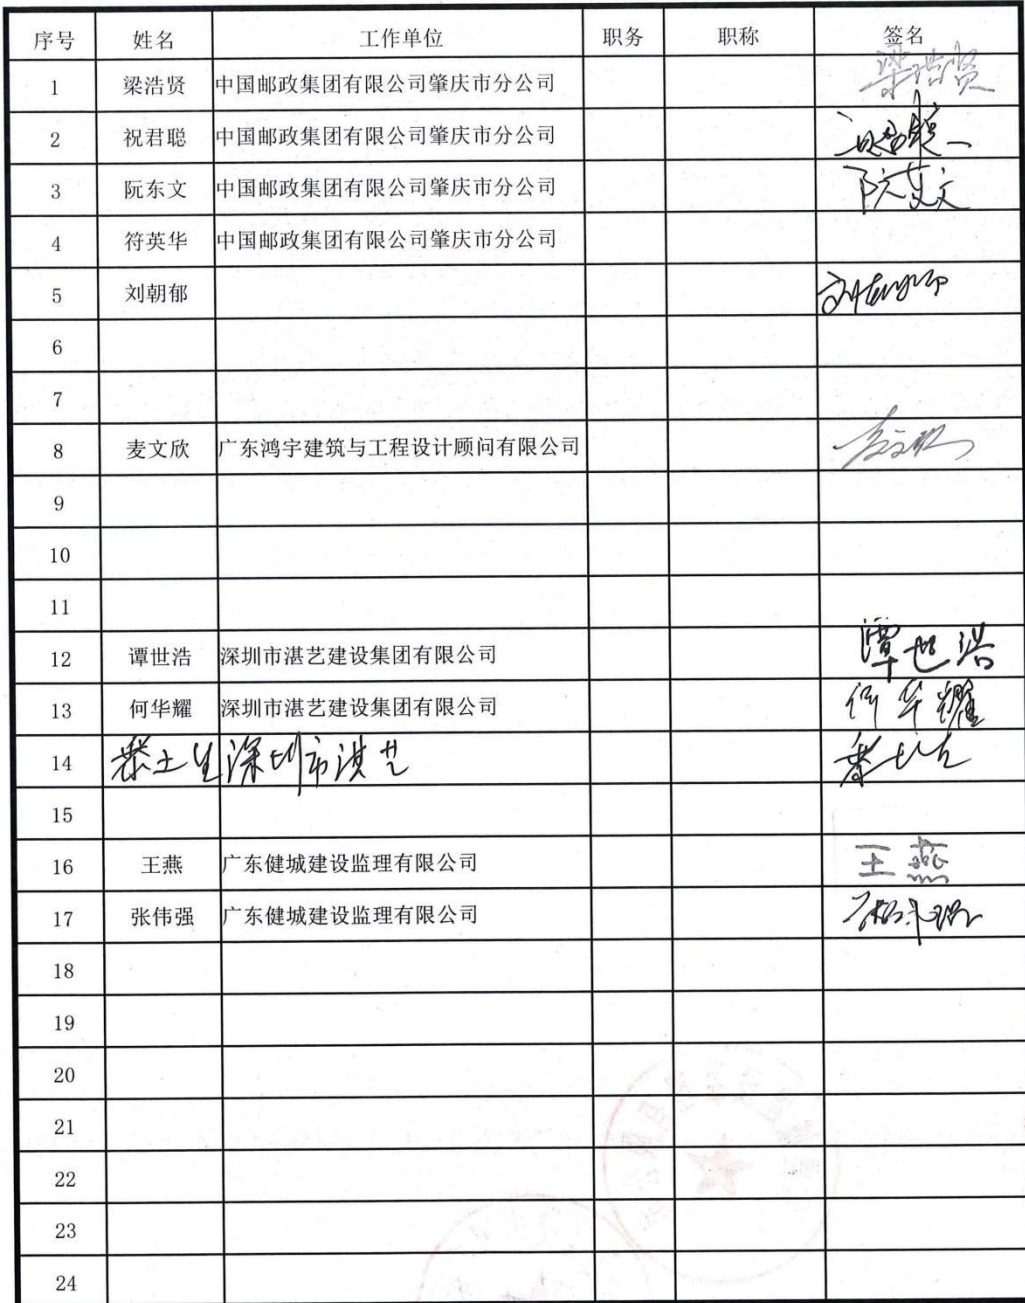 序号 姓名 工作单位 职务 职称 签名
1 梁浩贤 中国邮政集团有限公司肇庆市分公司 梁浩贤
2 祝君聪 中国邮政集团有限公司肇庆市分公司
3 阮东文 中国邮政集团有限公司肇庆市分公司 阮东文
4 符英华 中国邮政集团有限公司肇庆市分公司
5 刘朝郁
6
7
8 麦文欣 广东鸿宇建筑与工程设计顾问有限公司 麦文欣
9
10
11
12 谭世浩 深圳市湛艺建设集团有限公司 谭世浩
13 何华耀 深圳市湛艺建设集团有限公司 何华耀
14 深圳市湛艺
15
16 王燕 广东健城建设监理有限公司 王燕
17 张伟强 广东健城建设监理有限公司
18
19
20
21
22
23
24